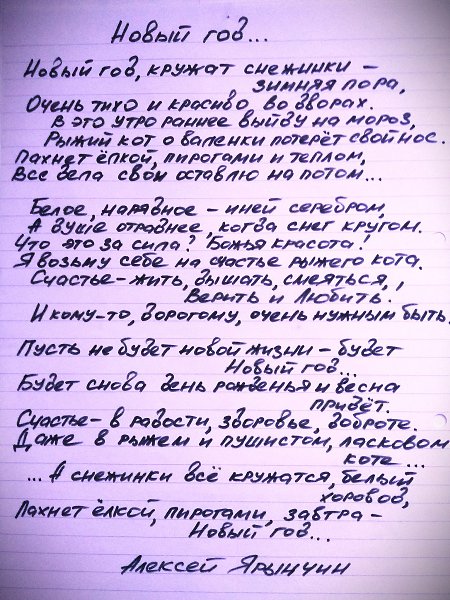 Новый год...
Новый год, кружат снежинки –
зимняя пора,
Очень тихо и красиво во дворах.
В это утро раннее выйду на мороз,
Рыжий кот о валенки потерёт свой нос.
Пахнет ёлкой, пирогами и теплом,
Все дела свои оставлю на потом...
Белое, нарядное – иней серебром,
А душе отраднее, когда снег кругом.
Что это за сила? Божья красота!
Я возьму себе на счастье рыжего кота.
Счастье – жить, дышать, смеяться, ,
Верить и Любить.
И кому-то, дорогому, очень нужным быть.
Пусть не будет новой жизни – будет
Новый год...
Будет снова день рожденья и весна
придёт.
Счастье – в радости, здоровье, доброте.
Даже в рыжем и пушистом, ласковом
коте...
... А снежинки всё кружатся, белый
хоровод,
Пахнет ёлкой, пирогами, завтра –
Новый год...
Алексей Ярынчин